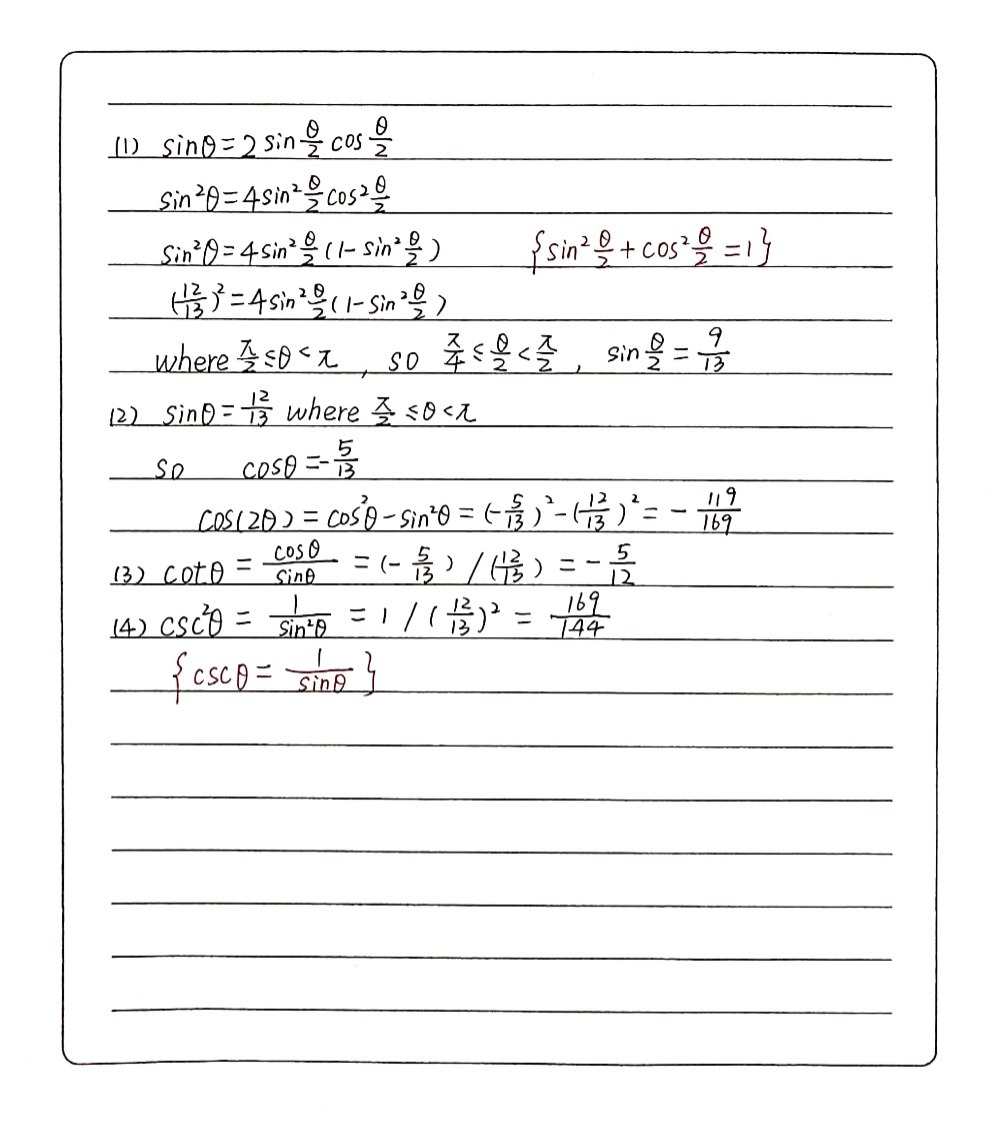 (1) sinθ = 2 sin θ/2 cos θ/2
sin²θ = 4 sin² θ/2 cos² θ/2
sin²θ = 4 sin² θ/2 (1 - sin² θ/2) {sin² θ/2 + cos² θ/2 = 1}
(12/13)² = 4 sin² θ/2 (1 - sin² θ/2)
where π/2 ≤ θ < π , so π/4 ≤ θ/2 < π/2 , sin θ/2 = 9/13
(2) sinθ = 12/13 where π/2 ≤ θ < π
so cosθ = -5/13
cos(2θ) = cos²θ - sin²θ = (-5/13)² - (12/13)² = -119/169
(3) cotθ = cosθ/sinθ = (-5/13) / (12/13) = -5/12
(4) csc²θ = 1/sin²θ = 1 / (12/13)² = 169/144
{cscθ = 1/sinθ}